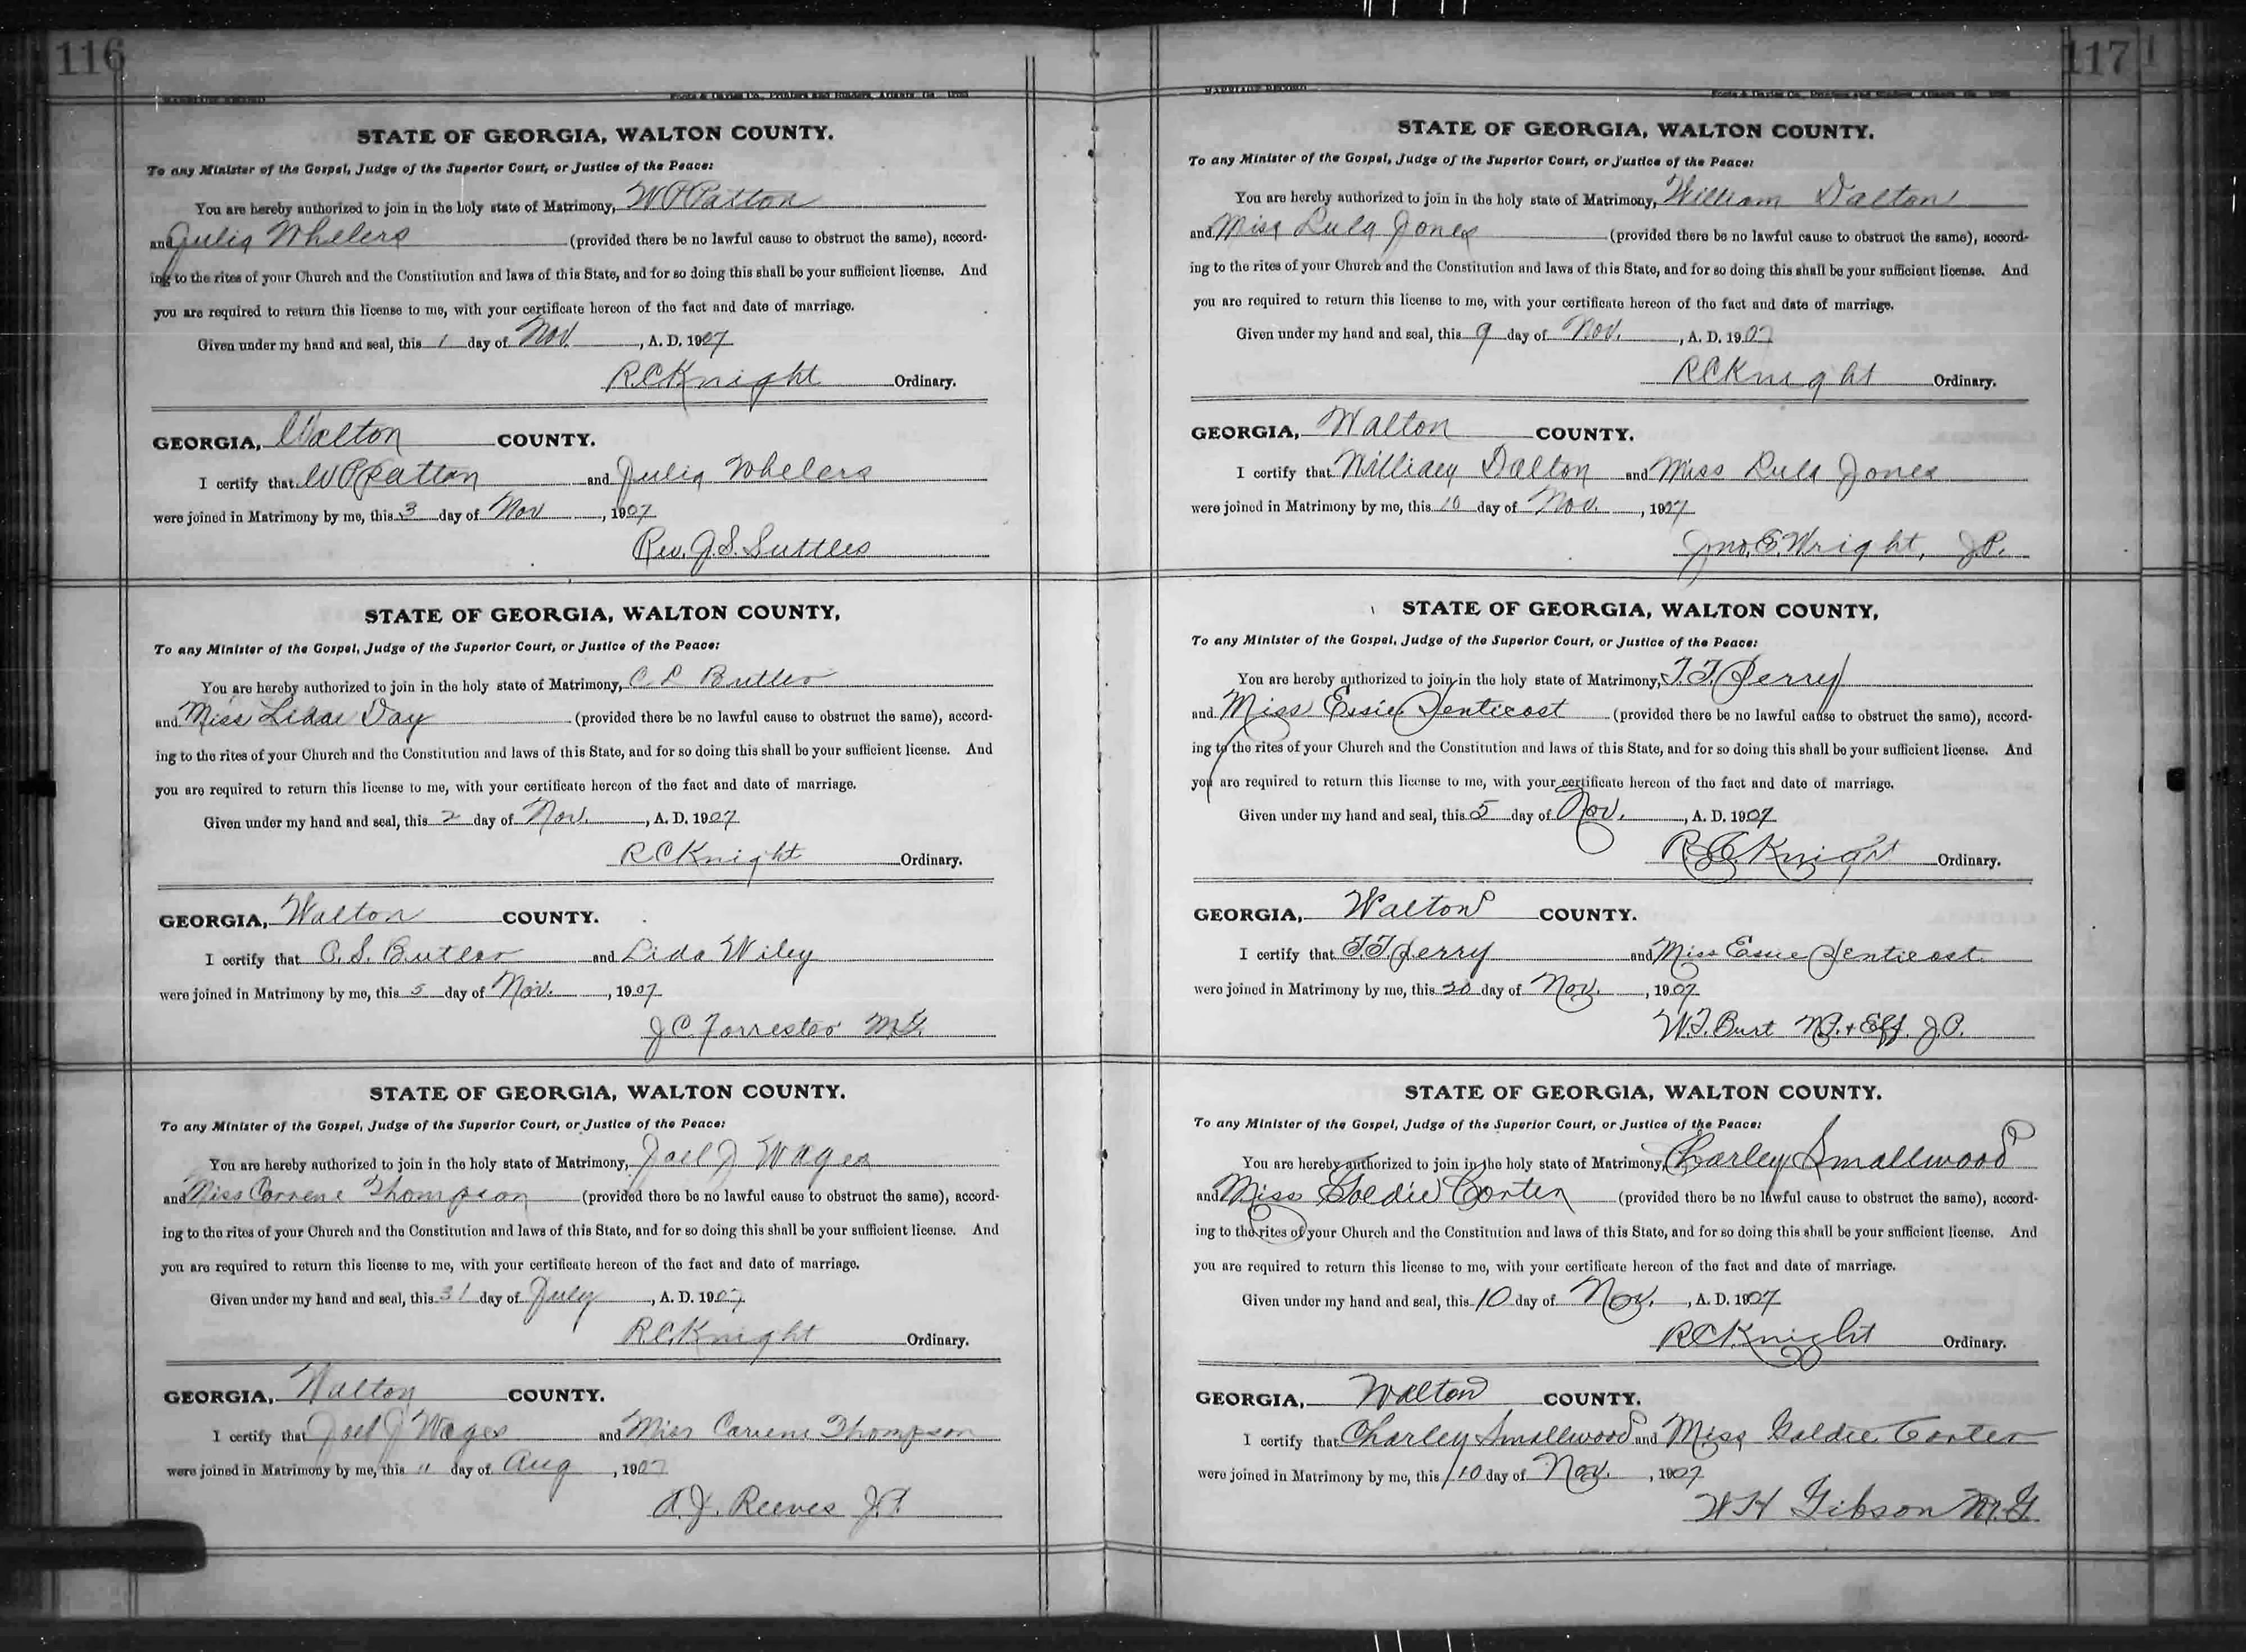 116
MARRIAGE RECORD Foote & Davies Co., Printers and Binders, Atlanta, Ga.
STATE OF GEORGIA, WALTON COUNTY.
To any Minister of the Gospel, Judge of the Superior Court, or Justice of the Peace:
You are hereby authorized to join in the holy state of Matrimony, W P Patton
and Julia Whelers (provided there be no lawful cause to obstruct the same), accord-
ing to the rites of your Church and the Constitution and laws of this State, and for so doing this shall be your sufficient license. And
you are required to return this license to me, with your certificate hereon of the fact and date of marriage.
Given under my hand and seal, this 1 day of Nov. , A. D. 1907
R.C. Knight Ordinary.
GEORGIA, Walton COUNTY.
I certify that W P Patton and Julia Whelers
were joined in Matrimony by me, this 3 day of Nov , 1907
Rev. J. S. Suttles
STATE OF GEORGIA, WALTON COUNTY,
To any Minister of the Gospel, Judge of the Superior Court, or Justice of the Peace:
You are hereby authorized to join in the holy state of Matrimony, C L Butler
and Miss Lidai Day (provided there be no lawful cause to obstruct the same), accord-
ing to the rites of your Church and the Constitution and laws of this State, and for so doing this shall be your sufficient license. And
you are required to return this license to me, with your certificate hereon of the fact and date of marriage.
Given under my hand and seal, this 2 day of Nov. , A. D. 1907
R C Knight Ordinary.
GEORGIA, Walton COUNTY.
I certify that C. S. Butler and Lida Wiley
were joined in Matrimony by me, this 5 day of Nov. , 1907
J C Forrester M.G.
STATE OF GEORGIA, WALTON COUNTY.
To any Minister of the Gospel, Judge of the Superior Court, or Justice of the Peace:
You are hereby authorized to join in the holy state of Matrimony, Joel J Wages
and Miss Correne Thompson (provided there be no lawful cause to obstruct the same), accord-
ing to the rites of your Church and the Constitution and laws of this State, and for so doing this shall be your sufficient license. And
you are required to return this license to me, with your certificate hereon of the fact and date of marriage.
Given under my hand and seal, this 31 day of July , A. D. 1907
R.C. Knight Ordinary.
GEORGIA, Walton COUNTY.
I certify that Joel J Wages and Miss Carrene Thompson
were joined in Matrimony by me, this 11 day of Aug , 1907
A. J. Reeves J.P.
117
MARRIAGE RECORD Foote & Davies Co., Printers and Binders, Atlanta, Ga.
STATE OF GEORGIA, WALTON COUNTY.
To any Minister of the Gospel, Judge of the Superior Court, or Justice of the Peace:
You are hereby authorized to join in the holy state of Matrimony, William Dalton
and Miss Lula Jones (provided there be no lawful cause to obstruct the same), accord-
ing to the rites of your Church and the Constitution and laws of this State, and for so doing this shall be your sufficient license. And
you are required to return this license to me, with your certificate hereon of the fact and date of marriage.
Given under my hand and seal, this 9 day of Nov. , A. D. 1907
R C Knight Ordinary.
GEORGIA, Walton COUNTY.
I certify that William Dalton and Miss Lula Jones
were joined in Matrimony by me, this 10 day of Nov. , 1907
Jno. E. Wright, J.P.
STATE OF GEORGIA, WALTON COUNTY,
To any Minister of the Gospel, Judge of the Superior Court, or Justice of the Peace:
You are hereby authorized to join in the holy state of Matrimony, T. T. Perry
and Miss Essie Penticost (provided there be no lawful cause to obstruct the same), accord-
ing to the rites of your Church and the Constitution and laws of this State, and for so doing this shall be your sufficient license. And
you are required to return this license to me, with your certificate hereon of the fact and date of marriage.
Given under my hand and seal, this 5 day of Nov. , A. D. 1907
R. C. Knight Ordinary.
GEORGIA, Walton COUNTY.
I certify that T. T. Perry and Miss Essie Penticost
were joined in Matrimony by me, this 20 day of Nov. , 1907
W. T. Burt N.P. + Eff. J.P.
STATE OF GEORGIA, WALTON COUNTY.
To any Minister of the Gospel, Judge of the Superior Court, or Justice of the Peace:
You are hereby authorized to join in the holy state of Matrimony, Charley Smallwood
and Miss Goldie Conter (provided there be no lawful cause to obstruct the same), accord-
ing to the rites of your Church and the Constitution and laws of this State, and for so doing this shall be your sufficient license. And
you are required to return this license to me, with your certificate hereon of the fact and date of marriage.
Given under my hand and seal, this 10 day of Nov. , A. D. 1907
R C Knight Ordinary.
GEORGIA, Walton COUNTY.
I certify that Charley Smallwood and Miss Goldie Conter
were joined in Matrimony by me, this 10 day of Nov. , 1907
W H Gibson M.G